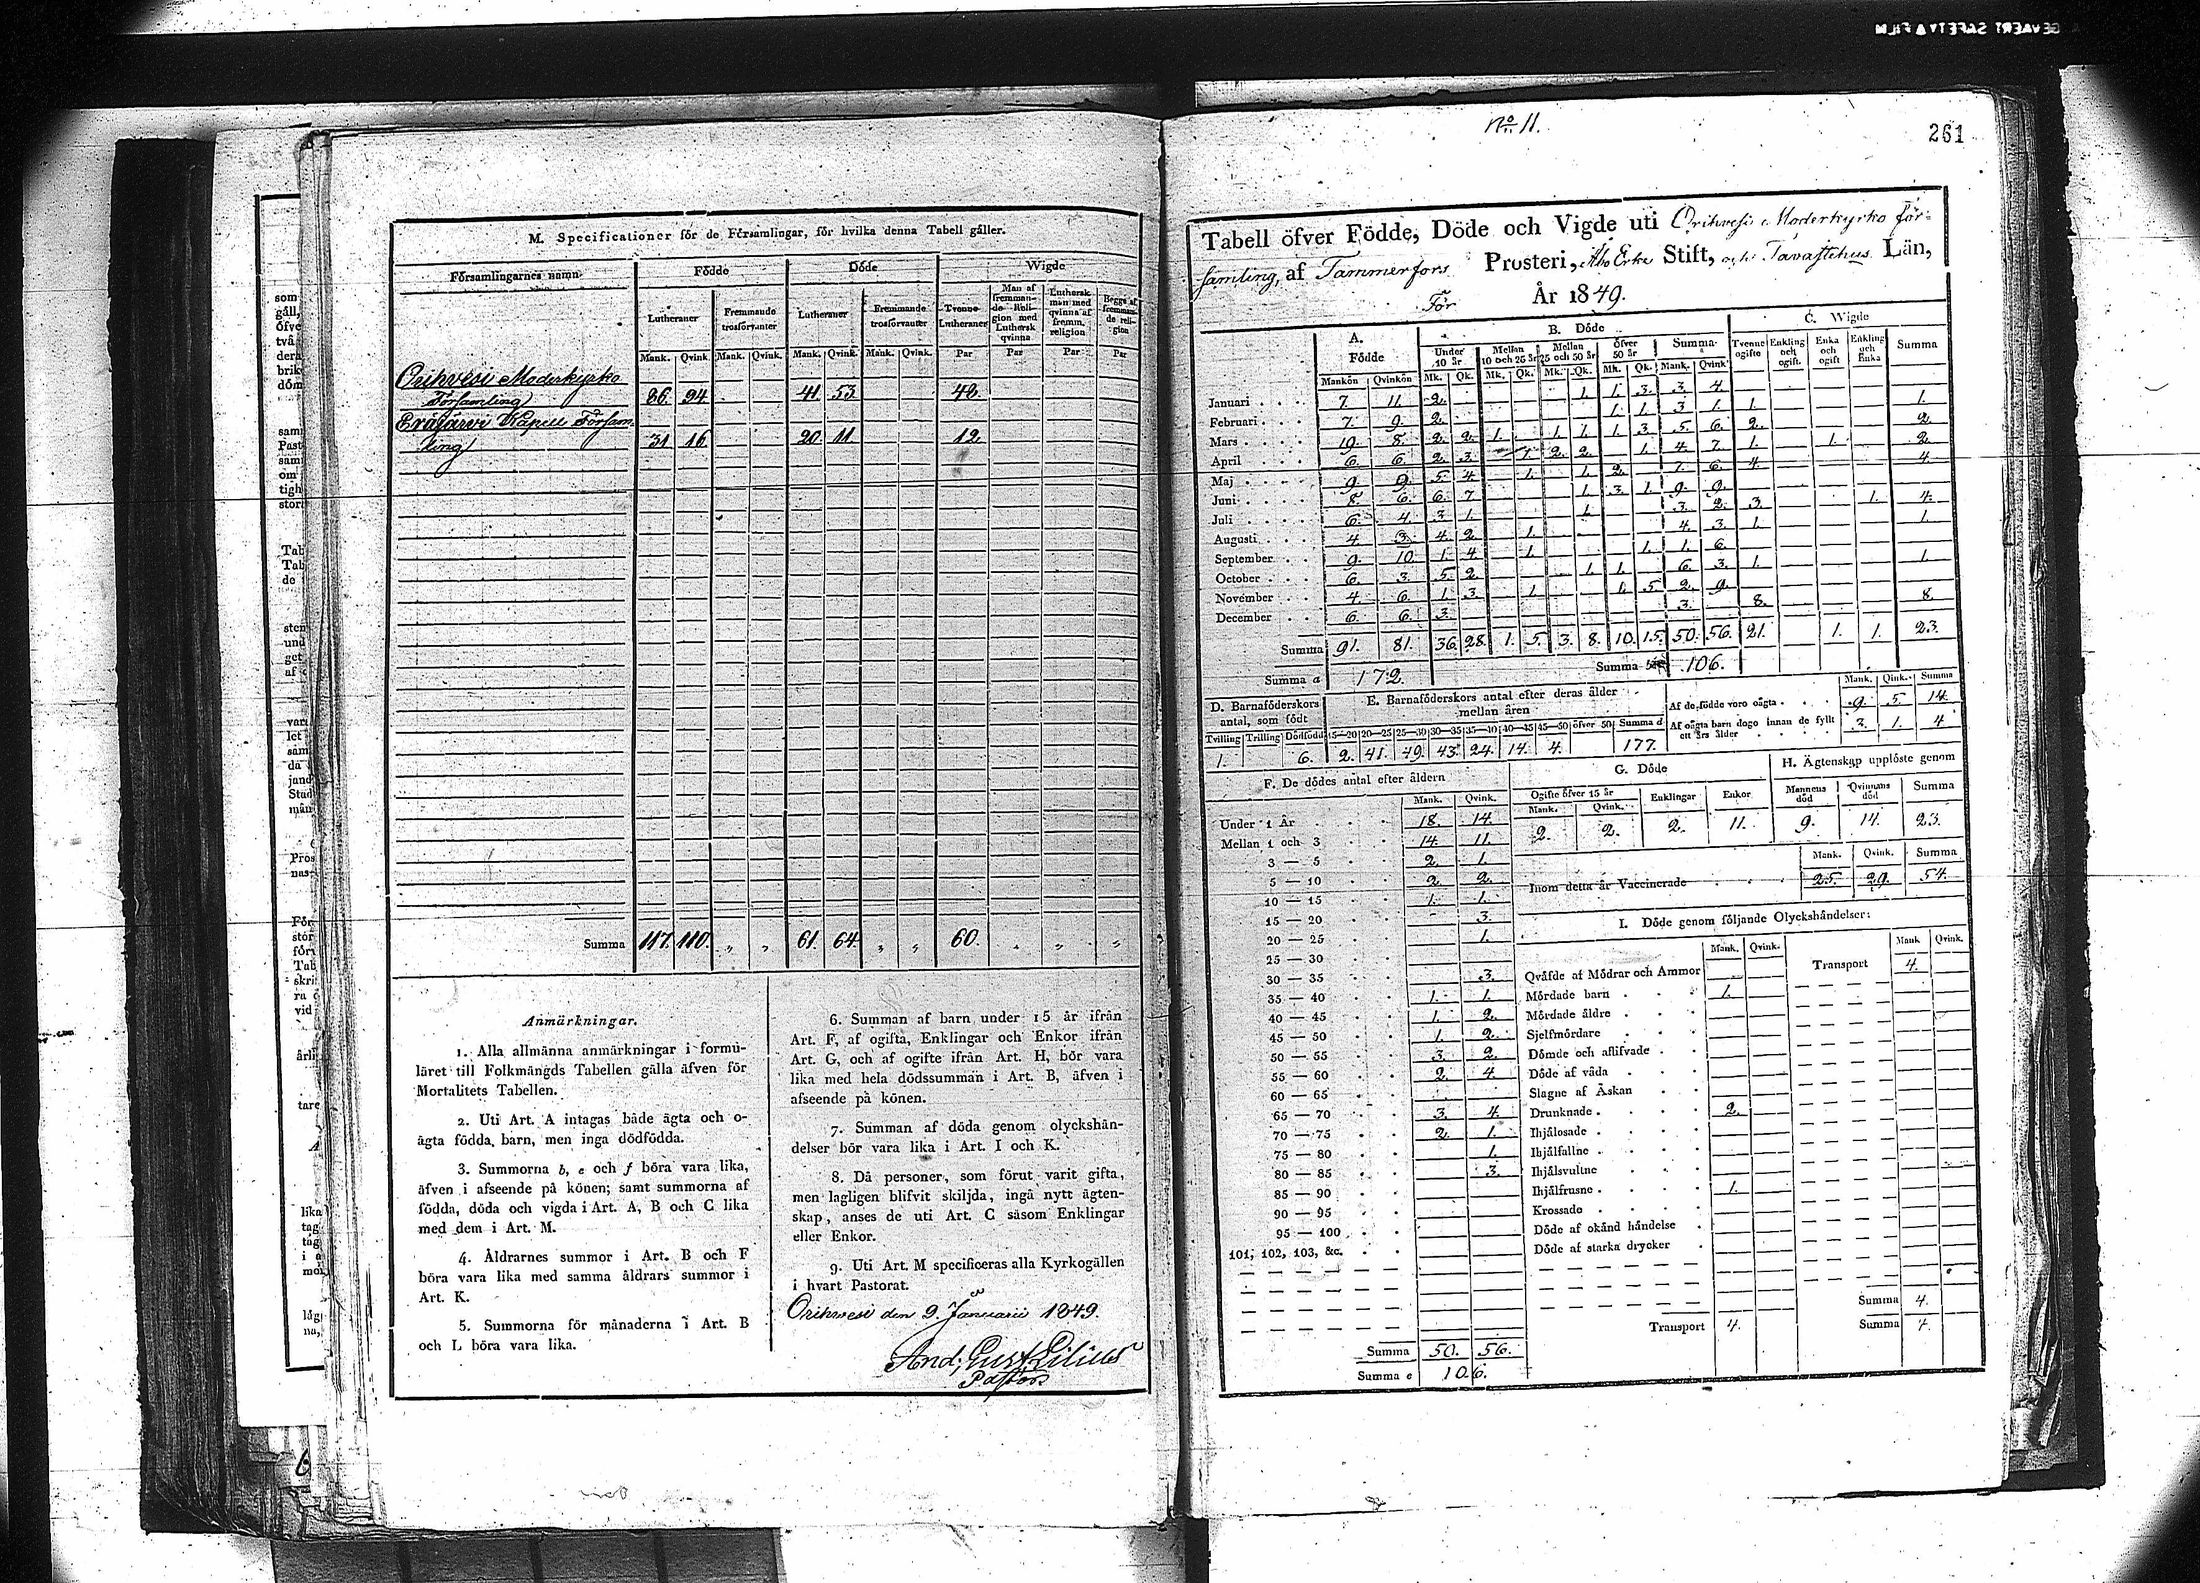 GEVAERT SAFETY FILM
M. Specificationer för de Församlingar, för hvilka denna Tabell gäller.
Församlingarnes namn
Födde
Döde
Wigde
Lutheraner
Fremmande trosförvanter
Lutheraner
Fremmande trosförvanter
Tvenne Lutheraner
Man af fremmande Religion med Luthersk qvinna
Luthersk man med qvinna af fremm. religion
Begge af fremmande religion
Mank. Qvink. Mank. Qvink. Mank. Qvink. Mank. Qvink. Par Par Par Par
Orihvesi Moderkyrko
Församling 86. 94. 41. 53. 48.
Eräjärvi Kapell Församling
31 16 20. 11. 12.
Summa 117. 110. " " 61. 64. " " 60. " " "
Anmärkningar.
1. Alla allmänna anmärkningar i formuläret till Folkmängds Tabellen gälla äfven för
Mortalitets Tabellen.
2. Uti Art. A intagas både ägta och o-
ägta födda barn, men inga dödfödda.
3. Summorna b, e och f böra vara lika,
äfven i afseende på könen; samt summorna af
födda, döda och vigda i Art. A, B och C lika
med dem i Art. M.
4. Åldrarnes summor i Art. B och F
böra vara lika med samma åldrars summor i
Art. K.
5. Summorna för månaderna i Art. B
och L böra vara lika.
6. Summan af barn under 15 år ifrån
Art. F, af ogifta, Enklingar och Enkor ifrån
Art. G, och af ogifte ifrån Art. H, bör vara
lika med hela dödssumman i Art. B, äfven i
afseende på könen.
7. Summan af döda genom olyckshän-
delser bör vara lika i Art. I och K.
8. Då personer, som förut varit gifta,
men lagligen blifvit skiljda, ingå nytt ägten-
skap, anses de uti Art. C såsom Enklingar
eller Enkor.
9. Uti Art. M specificeras alla Kyrkogällen
i hvart Pastorat.
Orihvesi den 9. Januarii 1849.
And; Gust. Lilius
Pastor
No 11.
261
Tabell öfver Födde, Döde och Vigde uti Orihvesi Moderkyrko för-
samling, af Tammerfors Prosteri, Åbo Erke Stift, och Tavastehus Län,
För År 1849.
A. Födde
B. Döde
C. Wigde
Under 10 år
Mellan 10 och 25 år
Mellan 25 och 50 år
öfver 50 år
Summa
Tvenne ogifte
Enkling och ogift.
Enka och ogift
Enkling och Enka
Summa
Mankön Qvinkön Mk. Qk. Mk. Qk. Mk. Qk. Mk. Qk. Mank. Qvink
Januari 7. 11. 2. 1. 1. 3. 3. 4.
Februari 7. 9. 2. 1. 1. 3. 1. 1. 1.
Mars 19. 8. 2. 2. 1. 1. 1. 1. 3. 5. 6. 2. 2.
April 6. 6. 2. 3. 1. 2. 2. 1. 4. 7. 1. 1. 2.
Maj 9. 9. 5. 4. 1. 1. 2. 7. 6. 4. 4.
Juni 8. 6. 6. 7. 1. 3. 1. 9. 9.
Juli 6. 4. 3. 1. 1. 3. 2. 3. 1. 4.
Augusti 4. 3. 4. 2. 1. 4. 3. 1. 1.
September 9. 10. 1. 4. 1. 1. 1. 6.
October 6. 3. 5. 2. 1. 1. 6. 3. 1. 1.
November 4. 6. 1. 3. 1. 1. 5. 2. 9.
December 6. 6. 3. 3. 8. 8.
Summa 91. 81. 36. 28. 1. 5. 3. 8. 10. 15. 50. 56. 21. 1. 1. 23.
Summa a 172. Summa 106.
D. Barnaföderskors antal, som födt
E. Barnaföderskors antal efter deras ålder mellan åren
Tvilling Trilling Dödfödd 15—20 20—25 25—30 30—35 35—40 40—45 45—50 öfver 50 Summa d
1. 6. 2. 41. 49. 43. 24. 14. 4. 177.
Mank. Qink. Summa
Af de födde voro oägta 9. 5. 14.
Af oägta barn dogo innan de fyllt ett års ålder 3. 1. 4
F. De dödes antal efter åldern
Mank. Qvink.
Under 1 År 18. 14.
Mellan 1 och 3 14. 11.
3 — 5 2. 1.
5 — 10 2. 2.
10 — 15 1. 1.
15 — 20 3.
20 — 25 1.
25 — 30
30 — 35 3.
35 — 40 1. 1.
40 — 45 1. 2.
45 — 50 1. 2.
50 — 55 3. 2.
55 — 60 2. 4.
60 — 65
65 — 70 3. 4.
70 — 75 2. 1.
75 — 80 1.
80 — 85 3.
85 — 90
90 — 95
95 — 100
101, 102, 103, &c.
Summa 50. 56.
Summa e 106.
G. Döde
Ogifte öfver 15 år
Mank. Qvink. Enklingar Enkor
2. 2. 2. 11.
H. Ägtenskap upplöste genom
Mannens död Qvinnans död Summa
9. 14. 23.
Mank. Qvink. Summa
Inom detta år Vaccinerade 25. 29. 54.
I. Döde genom följande Olyckshändelser:
Mank. Qvink. Mank Qvink.
Qväfde af Mödrar och Ammor Transport 4.
Mördade barn 1.
Mördade äldre
Sjelfmördare
Dömde och aflifvade
Döde af våda
Slagne af Åskan
Drunknade 2.
Ihjälosade
Ihjälfallne
Ihjälsvultne
Ihjälfrusne 1.
Krossade
Döde af okänd händelse
Döde af starka drycker
Summa 4.
Transport 4. Summa 4.